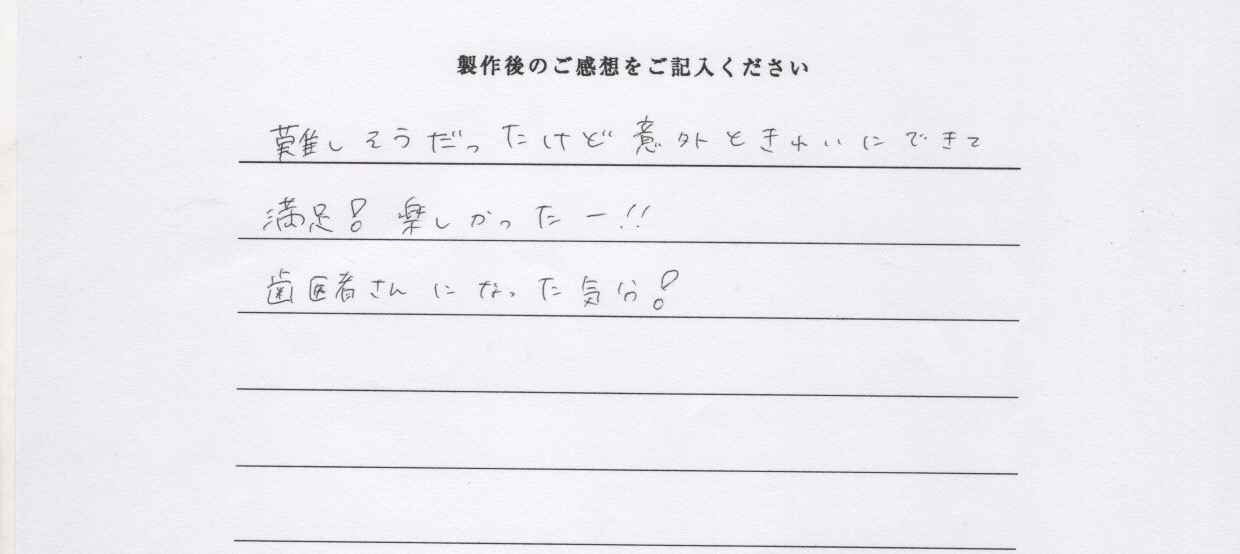 製作後のご感想をご記入ください
難しそうだったけど意外ときれいにできて
満足！楽しかったー!!
歯医者さんになった気分！